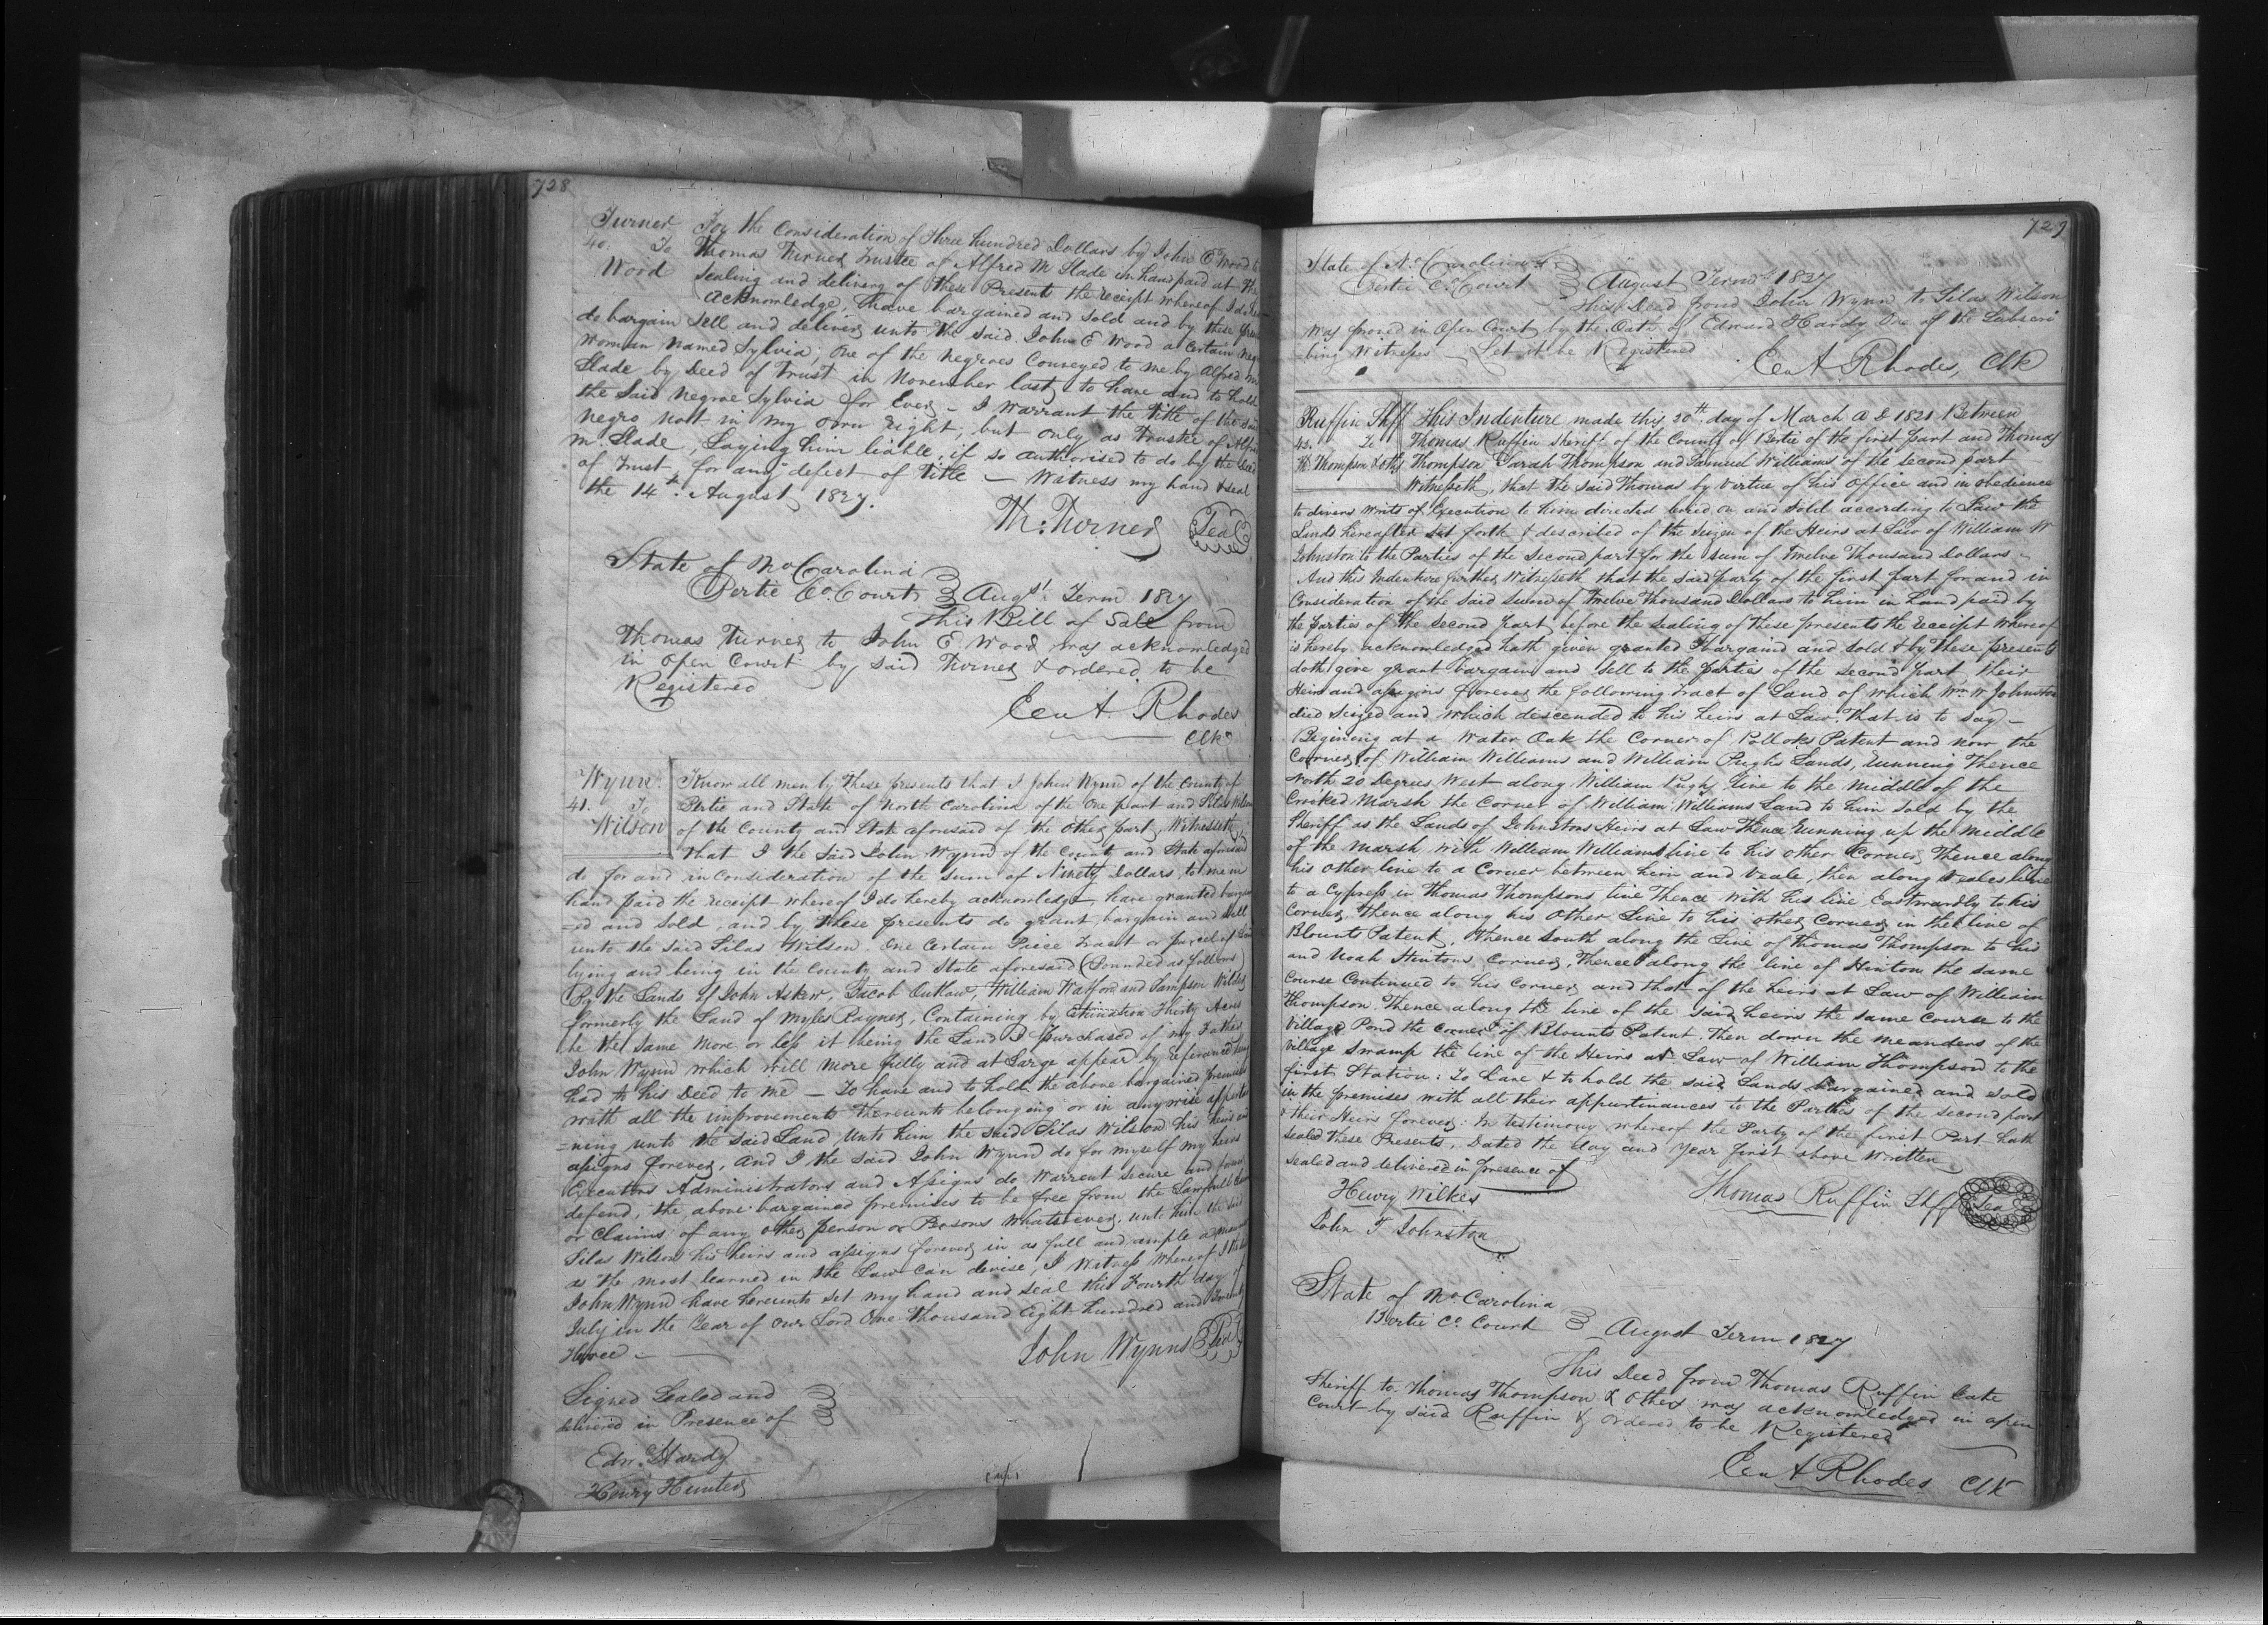 728
Turner For the Consideration of three hundred Dollars by John E Wood to
40. To Thomas Turner Trustee of Alfred M Slade in hand paid at the
Wood Sealing and delivery of these Presents the receipt whereof I do
acknowledge, I have bargained and sold and by these
do bargain sell and deliver unto the said John E Wood a certain
Woman named Sylvia, One of the negroes Conveyed to me by Alfred M
Slade by Deed of Trust in November last, to have and to hold
the said negroe Sylvia for Ever - I warrant the title of the said
negro not in my own right, but only as trustee of Alfred
M. Slade, Laying him liable, if so authorised to do by the Deed
of Trust, for any defect of Title — Witness my hand & seal
the 14th August 1827.
Th: Turner Seal
State of No Carolina
Bertie Co. Court Augst. Term 1827
This Bill of Sale from
Thomas Turner to John E Wood was acknowledged
in Open Court by said Turner & ordered to be
Registered
Ten A. Rhodes
Clk
Wynn Know all men by these presents that I John Wynn of the County of
41. To Bertie and State of North Carolina of the one part and Silas Wilson
Wilson of the County and State aforesaid of the other part, Witnesseth,
that I the said John Wynn of the County and State aforesaid
do for and in Consideration of the sum of Ninety Dollars to me in
hand paid the receipt whereof I do hereby acknowledge, have granted
=ed and sold, and by these presents do grant, bargain and Sell
unto the said Silas Wilson One Certain Price tract or parcel of
lying and being in the County and State aforesaid (Bounded as follows)
By the Lands of John Askew, Jacob Outlaw, William Watford and Sampson
formerly the Land of Myles Rayner, Containing by Estimation Thirty Acres
be the same more or less it being the Land I purchased of my Father
John Wynn which will more fully and at Large appear by reference being
had to his Deed to me — To have and to hold the above bargained premises
with all the improvements thereunto belonging or in any wise
=ning unto the said Land, Unto him the said Silas Wilson his heirs and
assigns forever, And I the said John Wynn do for myself my heirs
Executors Administrators and Assigns do Warrent secure and
defend, the above bargained premises to be free from the Lawfull
or Claims of any other person or Persons Whatsoever, unto him the said
Silas Wilson his heirs and assigns forever in as full and ample a manner
as the most learned in the Law Can devise, I Witness Whereof I the
John Wynn have hereunto set my hand and seal this Fourth day of
July in the Year of our Lord One thousand Eight hundred and Twenty
three —
John Wynns Seal
Signed Sealed and
delivered in Presence of
Edw. Hardy
Henry Hunter
729
State of No Carolina
Bertie Co. Court August Term 1827
This Deed from John Wynn to Silas Wilson
was proved in Open Court by the Oath of Edward Hardy One of the Subscri
=bing Witnesses — Let it be Registered
Ten A Rhodes, Clk
Ruffin Shff This Indenture made this 20th day of March A D 1821 Between
42. To Thomas Ruffin Sheriff of the County of Bertie of the first part and Thomas
Th Thompson & oths Thompson Sarah Thompson and Samuel Williams of the second part
Witnesseth, that the said Thomas by Virtue of his Office and in obedience
to divers writs of Execution to him directed levied on and sold according to Law the
Lands hereafter set forth & described of the seizen of the Heirs at Law of William W
Johnston to the Parties of the second part for the sum of Twelve Thousand Dollars -
And this Indenture further Witnesseth that the said party of the first part for and in
Consideration of the said sum of Twelve Thousand Dollars to him in hand paid by
the Parties of the second part, before the sealing of these presents the receipt whereof
is hereby acknowledged hath given granted bargained and sold & by these presents
doth give grant bargain and sell to the parties of the second part their
Heirs and assigns forever the following tract of Land of which Wm W Johnston
died seized and which descended to his heirs at Law. That is to say —
Begining at a Water Oak the Corner of Polloks Patent and now the
Corner of William Williams and William Pughs Lands, Running Thence
North 20 Degrees West along William Pughs line to the middle of the
Crooked Marsh the Corner of William Williams Land to him sold by the
Sheriff as the Lands of Johnstons Heirs at Law Thence Running up the middle
of the marsh with William Williams line to his other Corner, Thence along
his other line to a Corner between him and Veale, then along Veales line
to a Cypress in Thomas Thompsons line Thence with his line Eastwardly to his
Corner Thence along his other Line to his other Corner in the line of
Blounts Patent, thence South along the Line of Thomas Thompson to his
and Noah Hintons Corner, Thence along the line of Hinton the same
Course Continued to his Corner and that of the heirs at Law of William
Thompson Thence along the line of the said heirs the same course to the
Village Pond the corner of Blounts Patent. Then down the meanders of the
Village Swamp the line of the Heirs at Law of William Thompson to the
first Station: To have & to hold the said Lands bargained and sold
in the premises with all their appurtinances to the Parties of the second part
& their Heirs forever. In testimony whereof the Party of the first Part hath
sealed These Presents, Dated the day and year first above written
Sealed and delivered in presence of
Henry Wilkes Thomas Ruffin Shff Seal
John T Johnston
State of No Carolina
Bertie Co. Court August Term 1827
This Deed from Thomas Ruffin late
Sheriff to Thomas Thompson & others was acknowledged in open
Court by said Ruffin & ordered to be Registered
Ten A Rhodes Clk